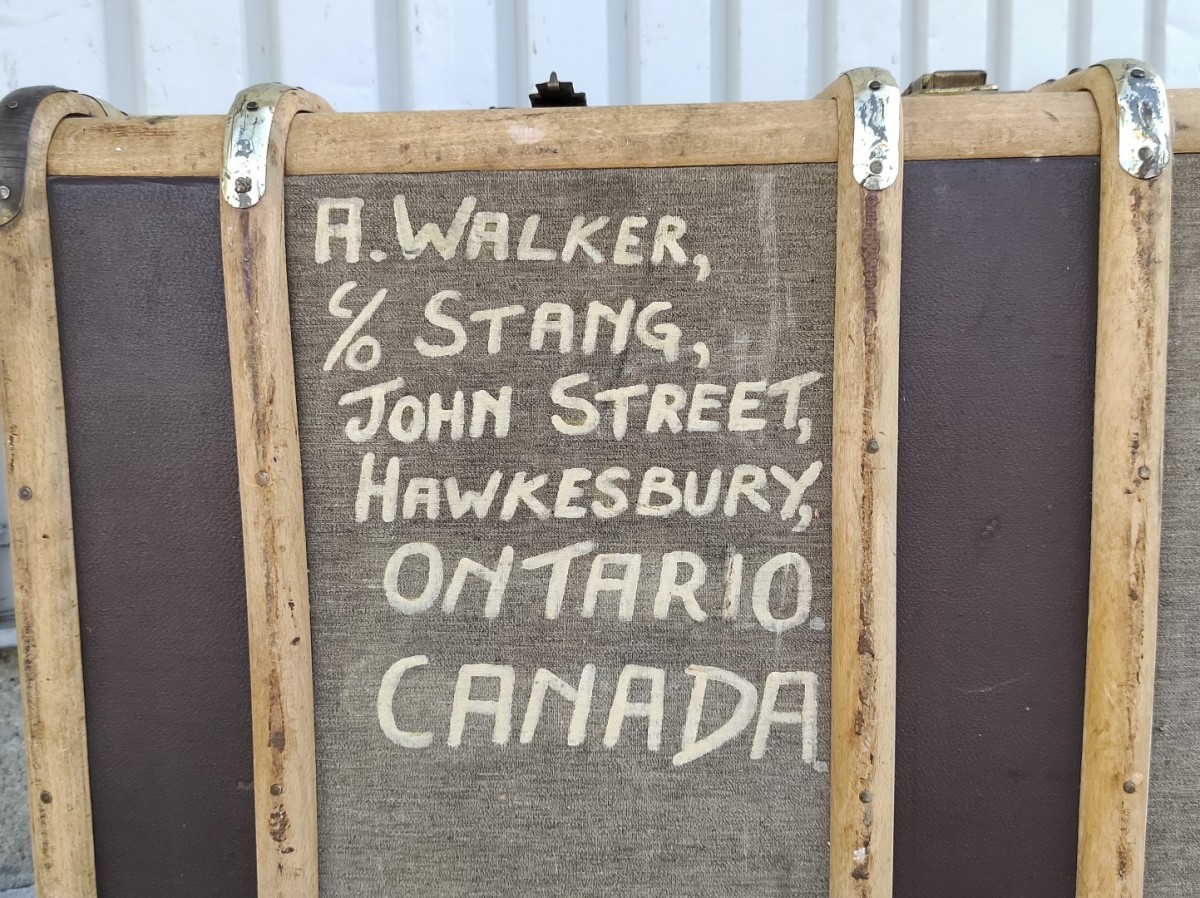 A. WALKER,
C/O STANG,
JOHN STREET,
HAWKESBURY,
ONTARIO.
CANADA.